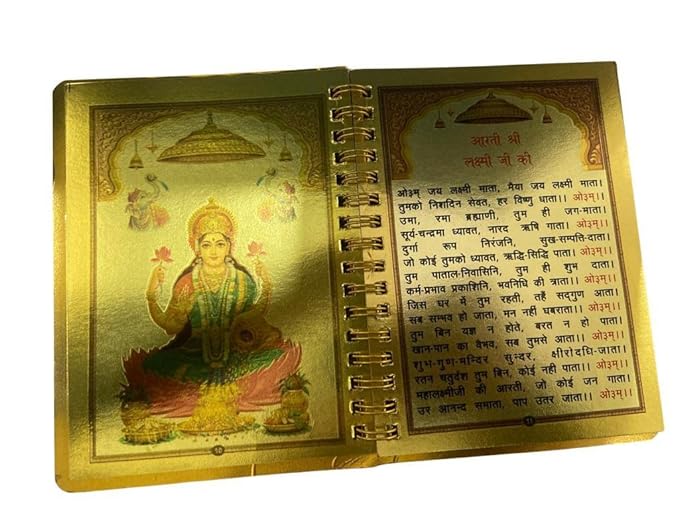 10
आरती श्री
लक्ष्मी जी की
ओ३म् जय लक्ष्मी माता, मैया जय लक्ष्मी माता।
तुमको निशदिन सेवत, हर विष्णु धाता।। ओ३म्।।
उमा, रमा ब्रह्माणी, तुम ही जग-माता।
सूर्य-चन्द्रमा ध्यावत, नारद ऋषि गाता। ओ३म्।।
दुर्गा रूप निरंजनि, सुख-सम्पति-दाता।
जो कोई तुमको ध्यावत, ऋद्धि-सिद्धि पाता। ओ३म्।।
तुम पाताल-निवासिनि, तुम ही शुभ दाता।
कर्म-प्रभाव प्रकाशिनि, भवनिधि की त्राता।। ओ३म्।।
जिस घर में तुम रहती, तहँ सद्गुण आता।
सब सम्भव हो जाता, मन नहीं घबराता।। ओ३म्।।
तुम बिन यज्ञ न होते, बरत न हो पाता।
खान-पान का वैभव, सब तुमसे आता।। ओ३म्।।
शुभ-गुण-मन्दिर सुन्दर, क्षीरोदधि-जाता।
रतन चतुर्दश तुम बिन, कोई नही पाता।। ओ३म्।।
महालक्ष्मीजी की आरती, जो कोई जन गाता।
उर आनन्द समाता, पाप उतर जाता।। ओ३म्।।
11